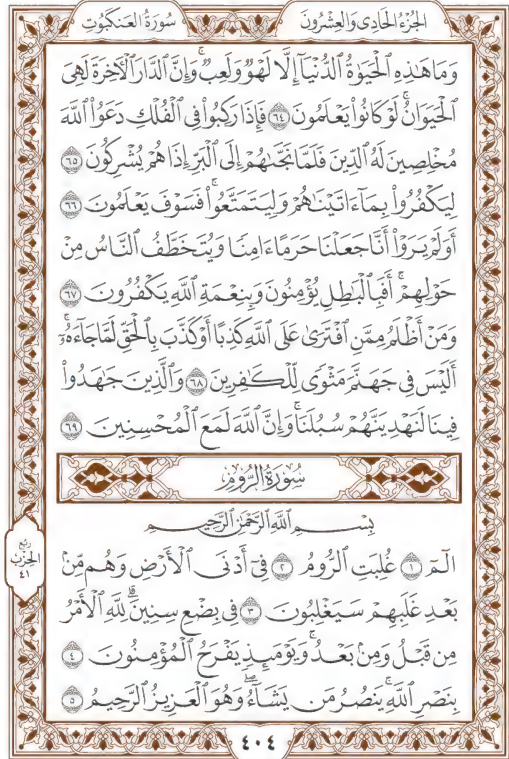 الجُزْءُ الحَادِى وَالعِشْرُونَ
سُورَةُ العَنكَبُوتِ
وَمَا هَٰذِهِ ٱلْحَيَوٰةُ ٱلدُّنْيَآ إِلَّا لَهْوٌ وَلَعِبٌ ۚ وَإِنَّ ٱلدَّارَ ٱلْأَخِرَةَ لَهِىَ
ٱلْحَيَوَانُ ۚ لَوْ كَانُوا۟ يَعْلَمُونَ ٦٤ فَإِذَا رَكِبُوا۟ فِى ٱلْفُلْكِ دَعَوُا۟ ٱللَّهَ
مُخْلِصِينَ لَهُ ٱلدِّينَ فَلَمَّا نَجَّىٰهُمْ إِلَى ٱلْبَرِّ إِذَا هُمْ يُشْرِكُونَ ٦٥
لِيَكْفُرُوا۟ بِمَآ ءَاتَيْنَٰهُمْ وَلِيَتَمَتَّعُوا۟ ۖ فَسَوْفَ يَعْلَمُونَ ٦٦
أَوَلَمْ يَرَوْا۟ أَنَّا جَعَلْنَا حَرَمًا ءَامِنًا وَيُتَخَطَّفُ ٱلنَّاسُ مِنْ
حَوْلِهِمْ ۚ أَفَبِٱلْبَٰطِلِ يُؤْمِنُونَ وَبِنِعْمَةِ ٱللَّهِ يَكْفُرُونَ ٦٧
وَمَنْ أَظْلَمُ مِمَّنِ ٱفْتَرَىٰ عَلَى ٱللَّهِ كَذِبًا أَوْ كَذَّبَ بِٱلْحَقِّ لَمَّا جَآءَهُۥٓ ۚ
أَلَيْسَ فِى جَهَنَّمَ مَثْوًى لِّلْكَٰفِرِينَ ٦٨ وَٱلَّذِينَ جَٰهَدُوا۟
فِينَا لَنَهْدِيَنَّهُمْ سُبُلَنَا ۚ وَإِنَّ ٱللَّهَ لَمَعَ ٱلْمُحْسِنِينَ ٦٩
سُورَةُ الرُّومِ
بِسْمِ ٱللَّهِ ٱلرَّحْمَٰنِ ٱلرَّحِيمِ
الٓمٓ ١ غُلِبَتِ ٱلرُّومُ ٢ فِىٓ أَدْنَى ٱلْأَرْضِ وَهُم مِّنۢ
بَعْدِ غَلَبِهِمْ سَيَغْلِبُونَ ٣ فِى بِضْعِ سِنِينَ ۗ لِلَّهِ ٱلْأَمْرُ
مِن قَبْلُ وَمِنۢ بَعْدُ ۚ وَيَوْمَئِذٍ يَفْرَحُ ٱلْمُؤْمِنُونَ ٤
بِنَصْرِ ٱللَّهِ ۚ يَنصُرُ مَن يَشَآءُ ۖ وَهُوَ ٱلْعَزِيزُ ٱلرَّحِيمُ ٥
رُبع
الحِزْب
٤١
٤٠٤